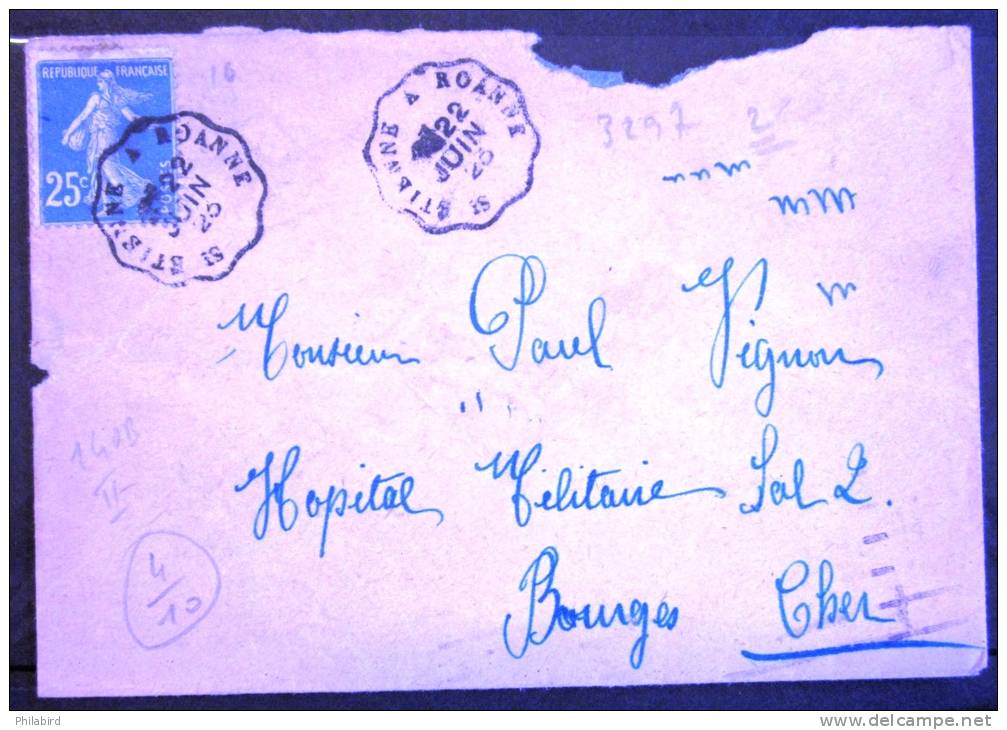 REPUBLIQUE FRANÇAISE
25c POSTES
ST ETIENNE A ROANNE
22
JUIN
25
ST ETIENNE A ROANNE
22
JUIN
25
16
3297 2
Monsieur Paul Vignon
Hopital Militaire Sal 2.
Bourges Cher
140B
II
4/10
Philabird
www.delcampe.net